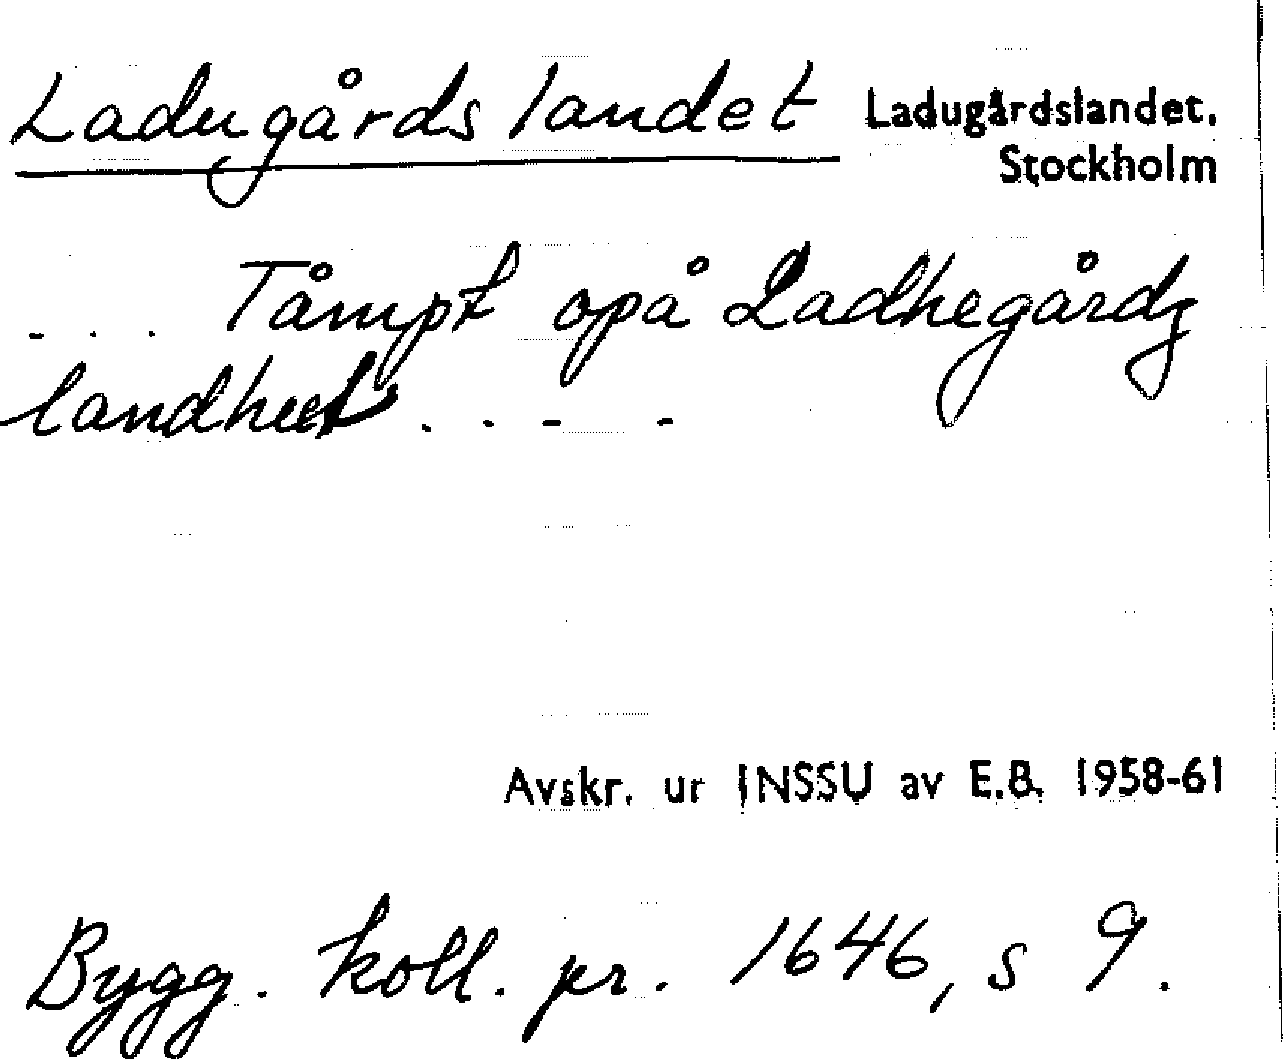 Ladugårdslandet Ladugårdslandet.
Stockholm
- . . Tåmpt opå Ladhegårdz
landheet . . - -
Avskr. ur INSSU av E.B. 1958-61
Bygg. koll. pr. 1646, s 9.